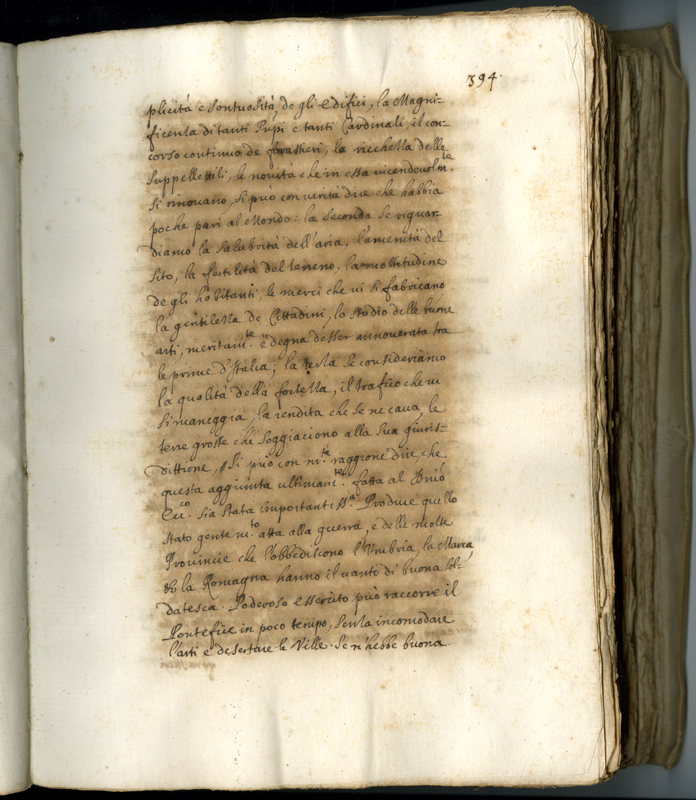 394.
plicità e sontuosità de gli edifici, la Magni-
ficenza di tanti Pnpi e tanti Cardinali, il con-
corso continuo de forastieri, la ricchezza delle
suppellettili, le novità che in essa vicendevolm.te
si rinovano, si può con verità dire che habbia
poche pari al Mondo: la seconda se riguar-
diamo la salubrità dell'aria, l'amenità del
sito, la fertilità del terreno, la moltitudine
de gli habitanti, le merci che vi si fabricano
la gentilezza de Cittadini, lo studio delle buone
arti, meritam.te è degna d'esser annoverata tra
le prime d'Italia; la terza se consideriamo
la qualità della fortezza, il trafico che vi
si maneggia, la rendita che se ne cava, le
terre grosse che soggiaciono alla sua giuris-
dittione, si può con m.ta raggione dire, che
questa aggiunta ultimam.te fatta al
Ecc.co sia stata importantiss.a Produce quello
stato gente m.to atta alla guerra, e delle molte
Provincie che l'obbediscono l'Umbria, la Marca,
& la Romagna hanno il vanto di buona sol-
datesca. Poderoso essercito può raccorre il
Pontefice in poco tempo, senza incomodare
l'arti e desertare le Ville. Se n'hebbe buona